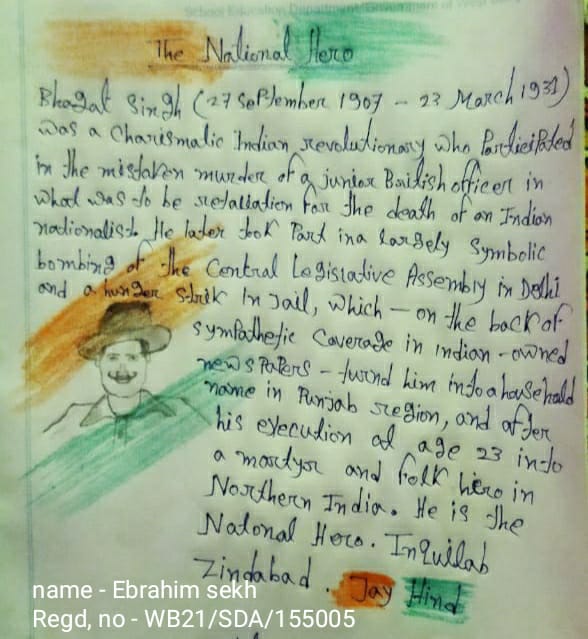 School Education Department, Government of West
The National Hero
Bhagat Singh (27 September 1907 - 23 March 1931)
was a Charismatic Indian revolutionary who Participated
in the mistaken murder of a junior British officer in
what was to be retaliation for the death of an Indian
nationalist. He later took Part in a largely Symbolic
bombing of the Central Legislative Assembly in Delhi
and a hunger Strik In Jail, which - on the back of
Sympathetic Coverage in Indian - owned
news Papers - turnd him into a household
name in Punjab region, and after
his execution at age 23 into
a martyr and folk hero in
Northern India. He is the
Natonal Hero. Inquilab
Zindabad. Jay Hind
name - Ebrahim sekh
Regd, no - WB21/SDA/155005